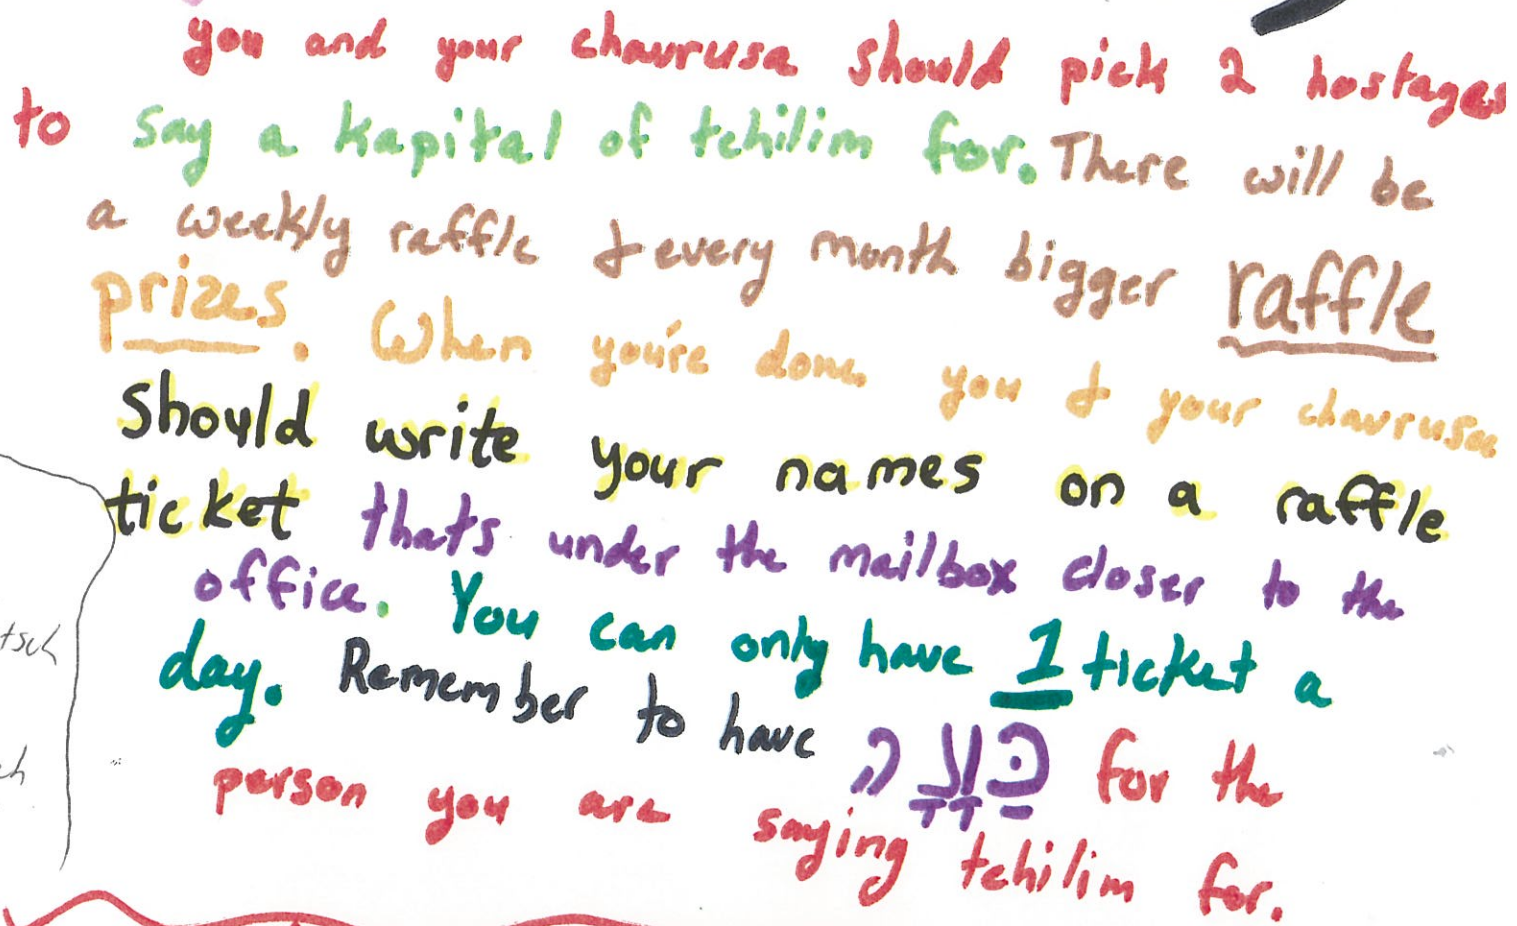 you and your chavrusa should pick 2 hostages
to say a kapital of tehilim for. There will be
a weekly raffle & every month bigger raffle
prizes. When you're done you & your chavrusa
should write your names on a raffle
ticket thats under the mailbox closer to the
office. You can only have 1 ticket a
day. Remember to have כַּוָּנָה for the
person you are saying tehilim for.
tsch
ch